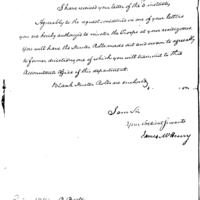 I have received your letter of the 5 instant,
Agreeably to the request contained in one of your letters
you are hereby authorized to muster the troops at your rendezvous
You will have the Muster Rolls made out and sworn to agreeably
to former directions one of which you will transmit to the
Accountants Office of this department.
Blank Muster Rolls are enclosed
I am Sir
Your obedient Servant
James McHenry